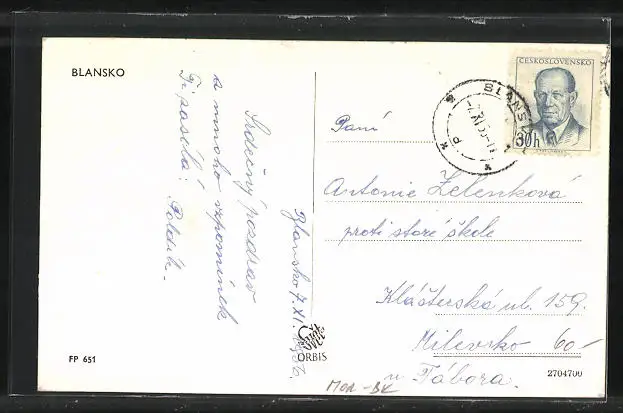 BLANSKO
Blansko 7. XI. 1956.
Srdečný pozdrav
a mnoho vzpomínek
Ti posílá:
Poldík.
FP 651
ORBIS
MOR - BK
ČESKOSLOVENSKO
30h
BLANSKO
Paní
Antonie Zelenková
proti staré škole
Klášterská ul. 159.
Milevsko 60-
u Tábora.
2704700